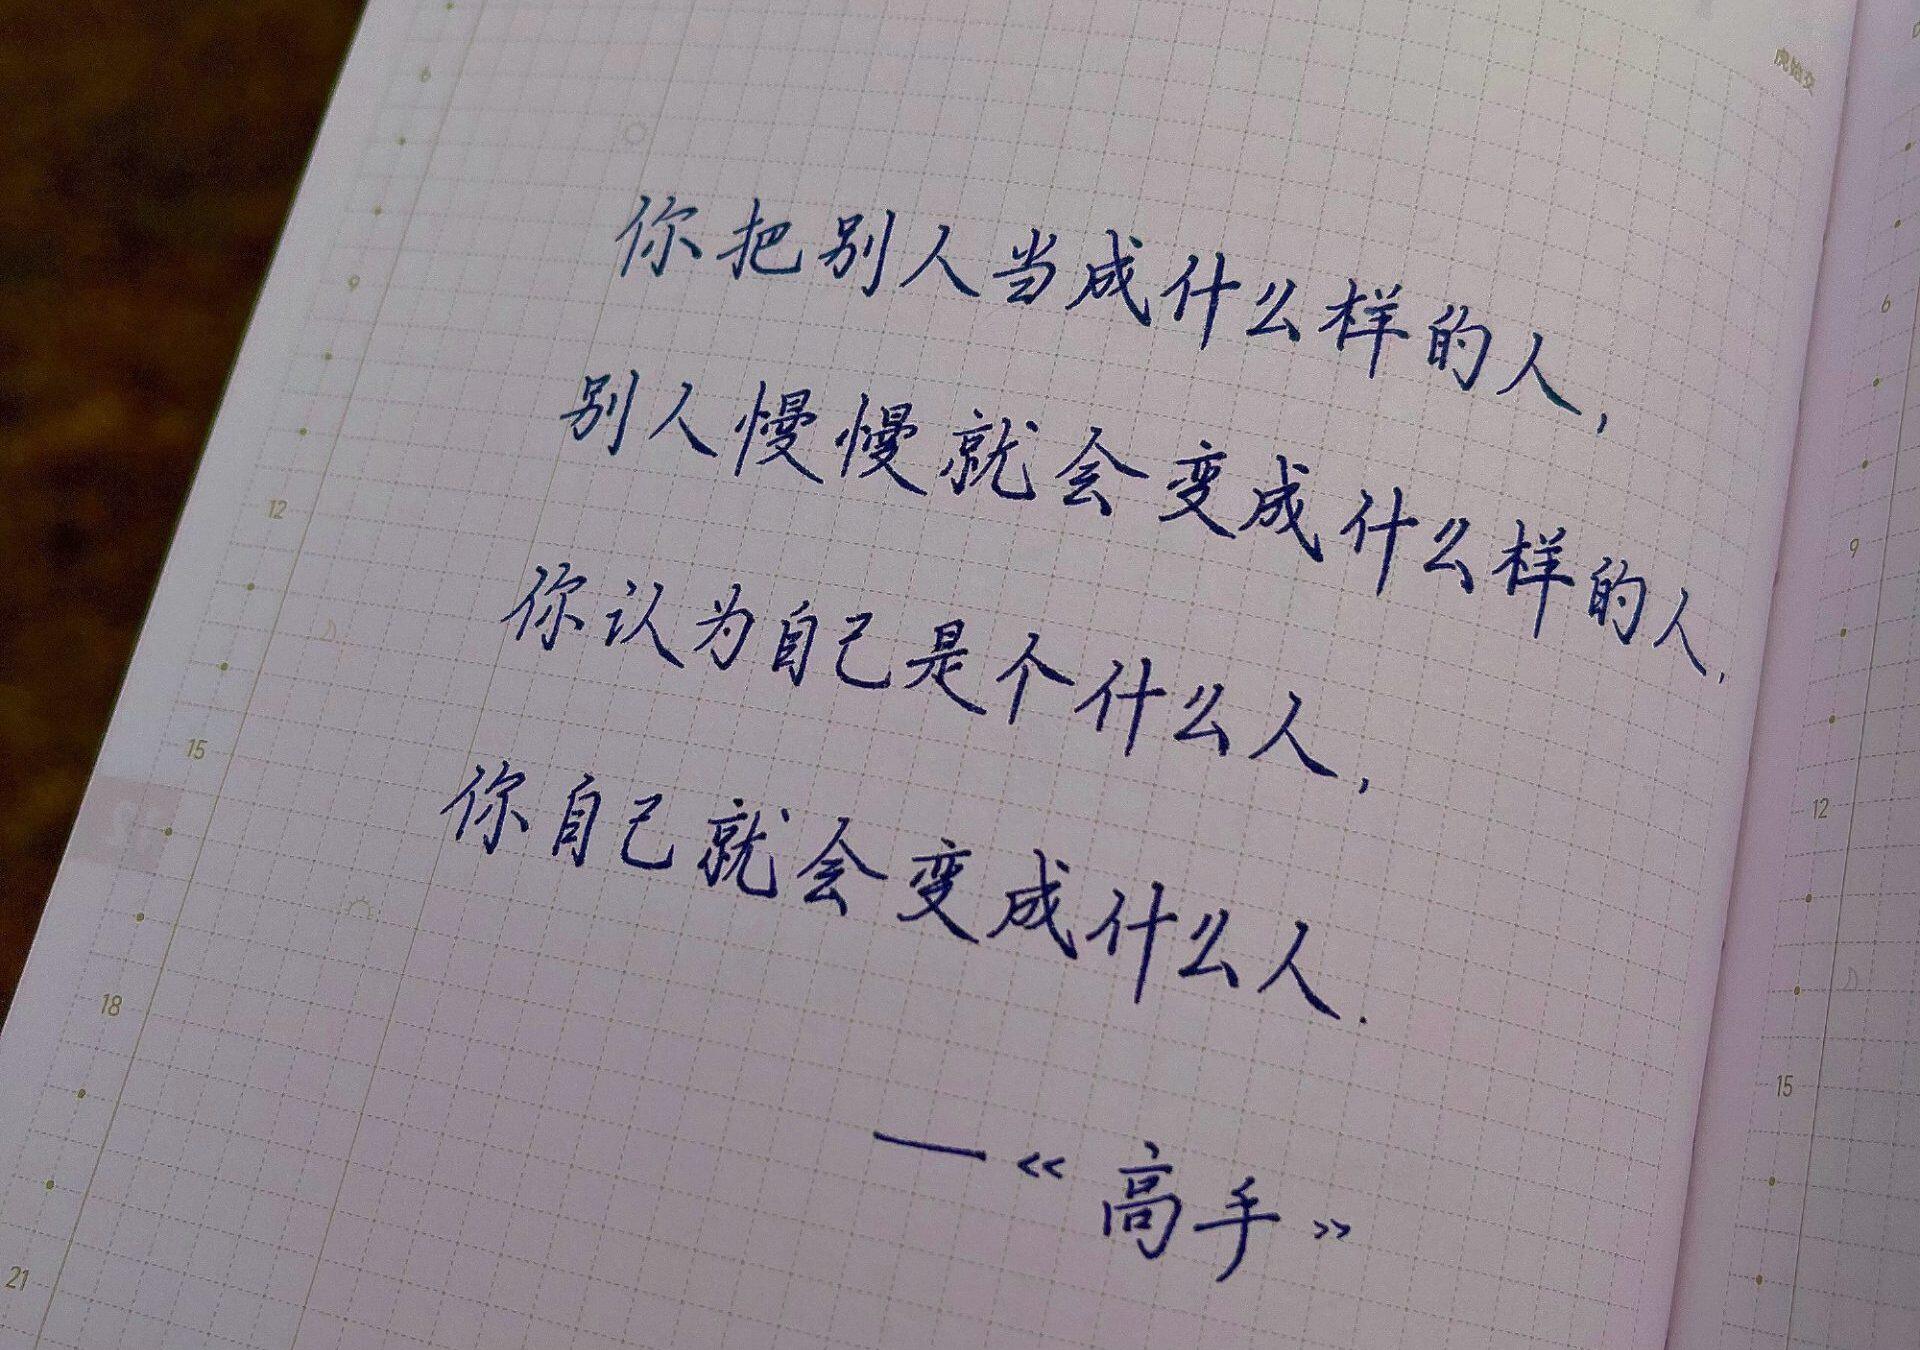 你把别人当成什么样的人,
别人慢慢就会变成什么样的人,
你认为自己是个什么人,
你自己就会变成什么人.
—《高手》
6
9
12
15
18
21
6
9
12
15